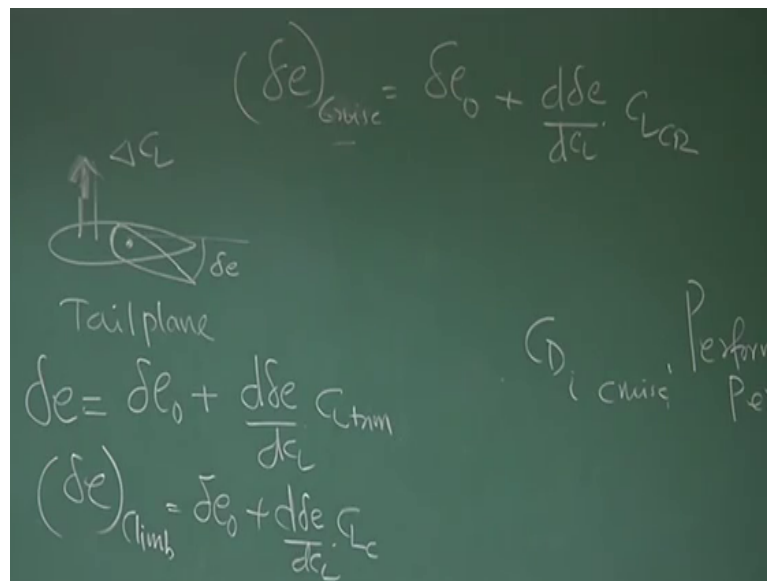 (δe)Cruise = δe₀ + dδe/dCL CLCR
ΔCL
δe
Tailplane
δe = δe₀ + dδe/dCL CLtrim
(δe)Climb = δe₀ + dδe/dCL · CLC
CDi cruise